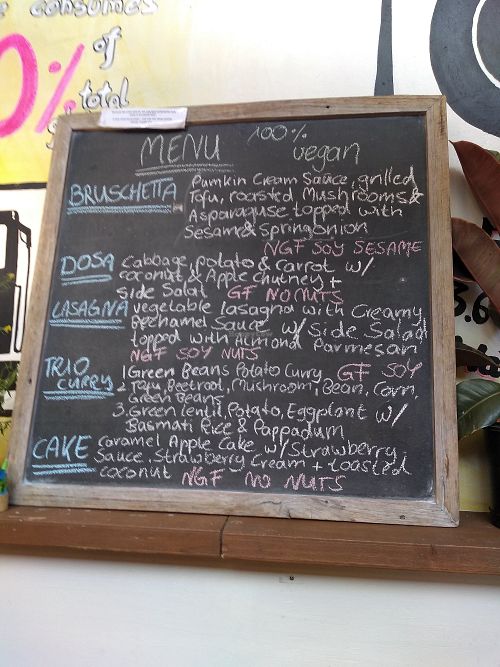 consumes
0% of
total
MENU 100%
vegan
BRUSCHETTA Pumkin Cream Sauce, grilled
Tofu, roasted Mushrooms &
Asparaguse topped with
Sesame & Springonion
NGF SOY SESAME
DOSA Cabbage, potato & Carrot w/
coconut & Apple chutney +
side Salat GF NO NUTS
LASAGNA vegetable lasagna with Creamy
Bechamel Sauce w/ Side Salad
topped with Almond Parmesan
NGF SOY NUTS
TRIO CURRY 1 Green Beans Potato Curry GF SOY
2 Tofu, Beetrod, Mushroom, Bean, Corn,
Green Beans
3. Green Lentil, Potato, Eggplant w/
Basmati Rice & Pappadum
CAKE Caramel Apple Cake w/ Strawberry
Sauce, Strawberry Cream + toasted
coconut NGF NO NUTS
3.6